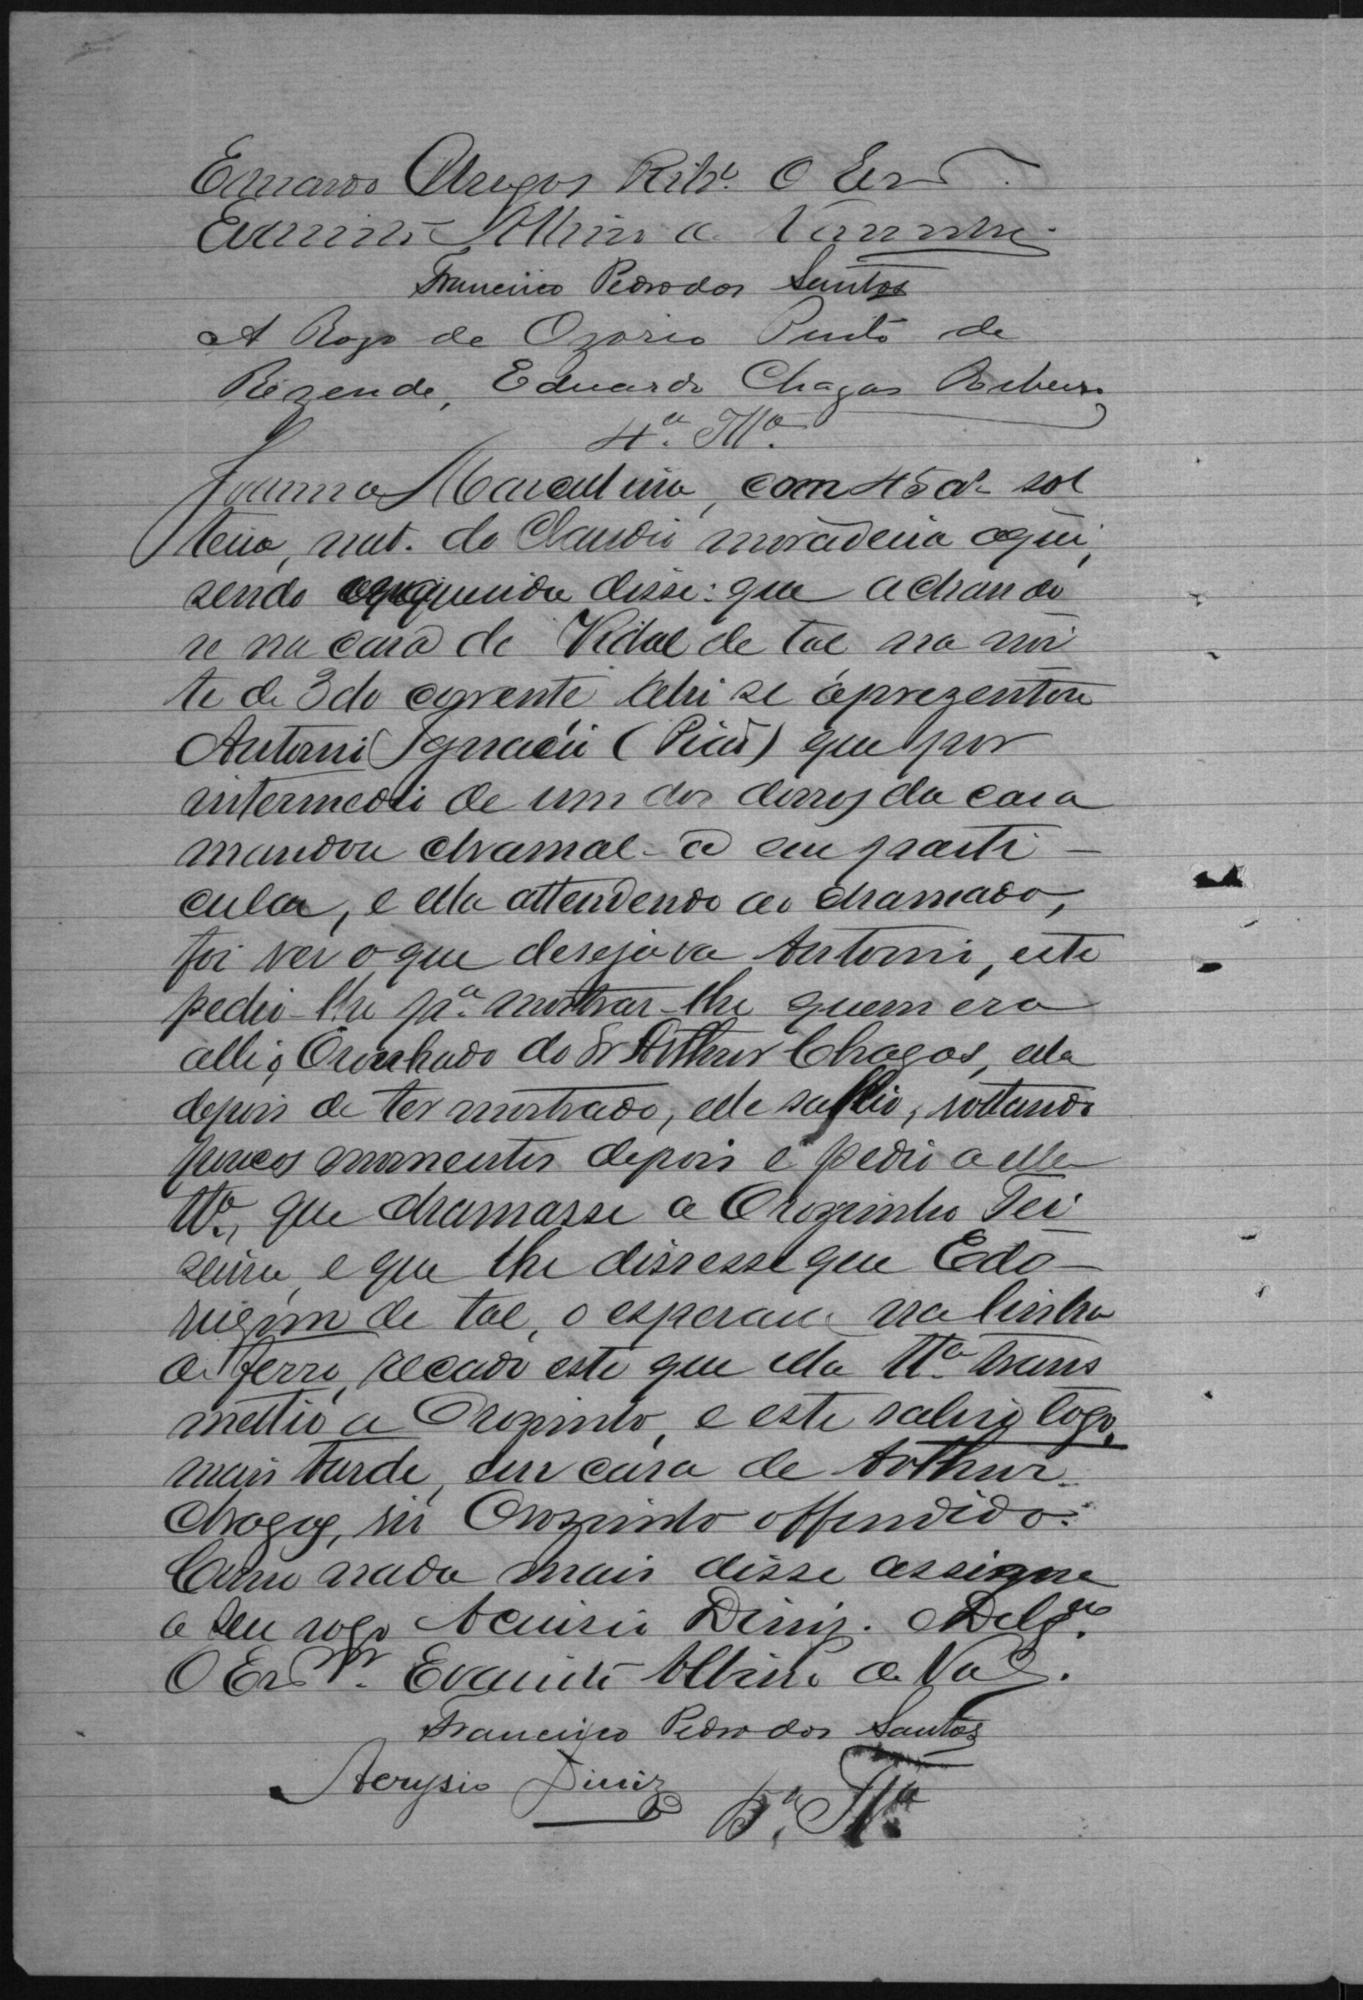 Eduardo Chagas Ribr.º O Esr
Evaristo Albino de
Francisco Pedro dos Santos
A Rogo de Ozorio Pinto de
Rezende, Eduardo Chagas Ribeiro
4.ª Tt.ª
Joanna Marculina, com 45 a.s sol
teira, nat. do Claudio moradeira aqui,
sendo disse: que achando
se na casa de Vidal de tal na noi
te de 3 do corrente ahi se aprezentou
Antonio Ignacio (Picão) que por
intermedio de um dos donos da casa
mandou chamal-a em parti-
cular, e ella attendendo ao chamado,
foi ver o que desejava Antonio, este
pedio-lhe p.ª mostrar-lhe quem era
alli o Cunhado do Sr Arthur Chagas, ella
depois de ter mostrado, elle sahio, voltando
poucos momentos depois e pedio a ella
tt.ª, que chamasse a Orozimbo Tei
xeira, e que lhe dissesse que Edo-
vigem de tal, o esperava na linha
de ferro, recado este que ella tt.ª trans
mettio a Orozimbo, e este sahio logo,
mais tarde, em casa de Arthur
Chagas, vio Orozimbo offendido.
Como nada mais disse assigna
a seu rogo Acrisio Diniz. O Delg.do
O Esr.m Evaristo Albino de Vas.
Francisco Pedro dos Santos
Acrysio Diniz
5.ª Tt.ª